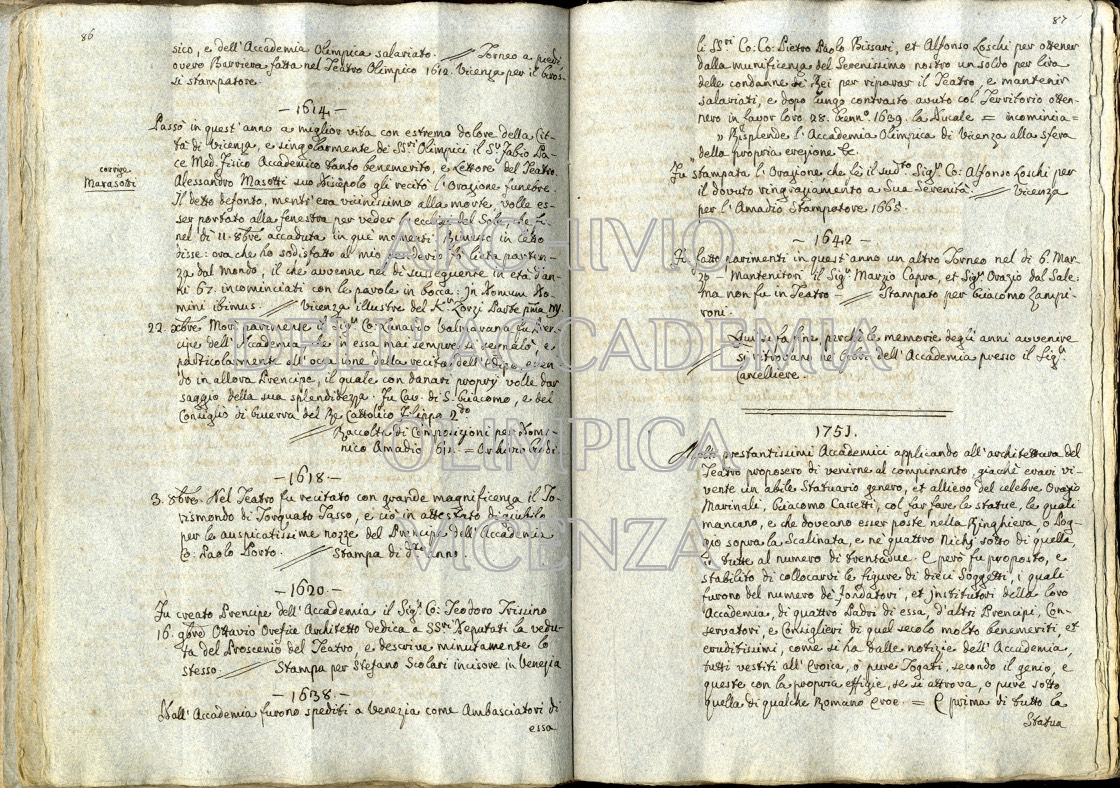 86
sico, e dell'Accademia Olimpica salariato. Torneo a piedi,
overo Barriera fatta nel Teatro Olimpico 1612. Vicenza per il
si stampatore.
- 1614 -
Passò in quest'anno a miglior vita con estremo dolore della Cit-
tà di Vicenza, e singolarmente de' SS.ri Olimpici il S.r Fabio Pa-
ce Med. Fisico Accademico tanto benemerito, e Lettore del Teatro.
corrige
Marasotti
Alessandro Masotti suo discepolo gli recitò l'Orazione funebre.
Il detto defonto, mentr'era vicinissimo alla morte volle es-
ser portato alla fenestra per veder l'ecclissi del Sole, che fù
nel dì 11. 8bre accaduta in que' momenti. Rimesso in letto
disse: ora che ho sodisfatto al mio desiderio fò lieta parten-
za dal Mondo, il che avvenne nel dì susseguente in età d'an-
ni 67. incominciati con le parole in bocca: In Domum Do-
mini ibimus. Vicenza illustre del Zorzi Parte
22. Xbre Morì parimente il Sig.r Co: Lunardo Valmarana fu Pren-
cipe dell'Accademia, che in essa mai sempre si segnalò, e
particolarmente all'occasione della recita dell'Edipo, essen-
do in allora Prencipe, il quale con danari proprj volle dar
saggio della sua splendidezza. Fu Cav. di S. Giacomo, e del
Consiglio di Guerra del Re Cattolico Filippo 2.do
Raccolta di Composizioni per Dome-
nico Amadio 1611. = Archivio
- 1618 -
3. Xbre. Nel Teatro fu recitato con grande magnificenza il To-
rismondo di Torquato Tasso, e ciò in attestato di giubilo
per le auspicatissime nozze del Principe dell'Accademia
Co: Paolo Porto. Stampa di d.to anno.
- 1620 -
Fu creato Prencipe dell'Accademia il Sig.r Co: Teodoro Trissino
16. 9bre Ottavio Orefice Architetto dedica a SS.ri Deputati la vedu-
ta del Proscenio del Teatro, e descrive minutamente lo
stesso. Stampa per Stefano Scolari incisore in Venezia
- 1638 -
Dall'Accademia furono spediti a Venezia come Ambasciatori di
essa
87
li SS.ri Co: Co: Pietro Paolo Bissari, et Alfonso Loschi per ottener
dalla munificenza del Serenissimo nostro un soldo per lira
delle condanne de' Rei per riparar il Teatro, e mantenir
salariati, e dopo lungo contrasto avuto col Territorio otten-
nero in favor loro 28. Genn.o 1639. la Ducale = incomincia =
" Risplende l'Accademia Olimpica di Vicenza alla sfera
" della propria erezione &c.
Fu stampata l'Orazione, che fè il sud.to Sig.r Co: Alfonso Loschi per
il dovuto ringraziamento a Sua Serenità. Vicenza
per l'Amadio Stampatore 1665.
- 1642 -
Fu fatto parimenti in quest'anno un altro Torneo nel dì 6. Mar-
zo - Mantenitori il Sig.r Marzio Capra, et Sig.r Orazio dal Sale:
ma non fu in Teatro - Stampato per Giacomo Zampi-
roni.
Qui si fa fine, perchè le memorie degli anni avvenire
si ritrovano ne' libri dell'Accademia presso il Sig.r
Cancelliere.
1751.
Molti prestantissimi Accademici applicando all'architettura del
Teatro proposero di venirne al compimento, giachè eravi vi-
vente un abile Statuario genero, et allievo del celebre Orazio
Marinali, Giacomo Cassetti, col far fare le statue, le quali
mancano, e che doveano esser poste nella Ringhiera, o Pog-
gio sopra la Scalinata, e ne' quattro Nichj sotto di quella,
in tutte al numero di trentadue. E però fu proposto, e
stabilito di collocarvi le figure di dieci Soggetti, i quali
furono del numero de' fondatori, et Institutori della loro
Accademia, di quattro Padri di essa, d'altri Prencipi, Con-
servatori, e Consiglieri di quel secolo molto benemeriti, et
eruditissimi, come si ha dalle notizie dell'Accademia,
tutti vestiti all'Eroica, o pure Togati, secondo il genio, e
queste con la propria effigie, se si attrova, o pure sotto
quella di qualche Romano Eroe. = E prima di tutto la
Statua
ARCHIVIO
DELL'ACCADEMIA
OLIMPICA
VICENZA